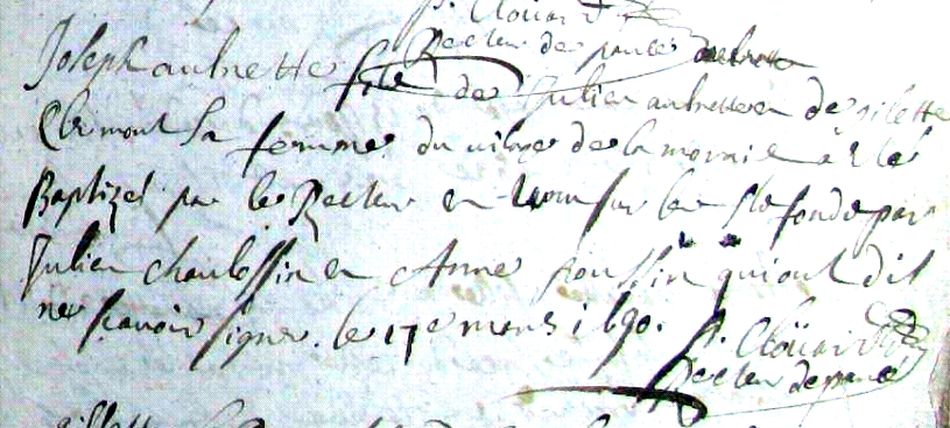 p. Cloüard
Recteur de pance
Joseph aubrette fils de Julien aubrette et de gilette
Clermont sa femme du vilage de la morais a esté
Baptizé par le Recteur et tenu sur les sts fonds par
Julien chaulossin et Anne poussin qui ont dit
ne scavoir signer. le 17e mars 1690. p. Cloüard
Recteur de pancé
gillette